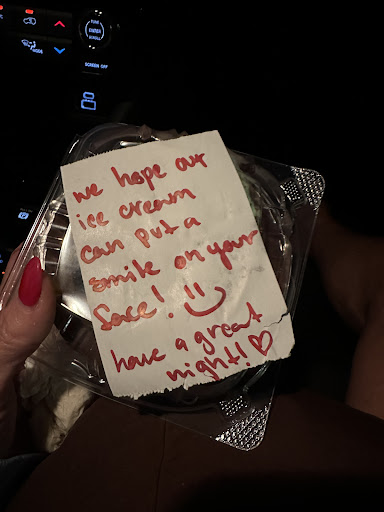 TUNE
ENTER
SCROLL
MODE
SCREEN OFF
we hope our
ice cream
can put a
smile on your
face!
have a great
night!